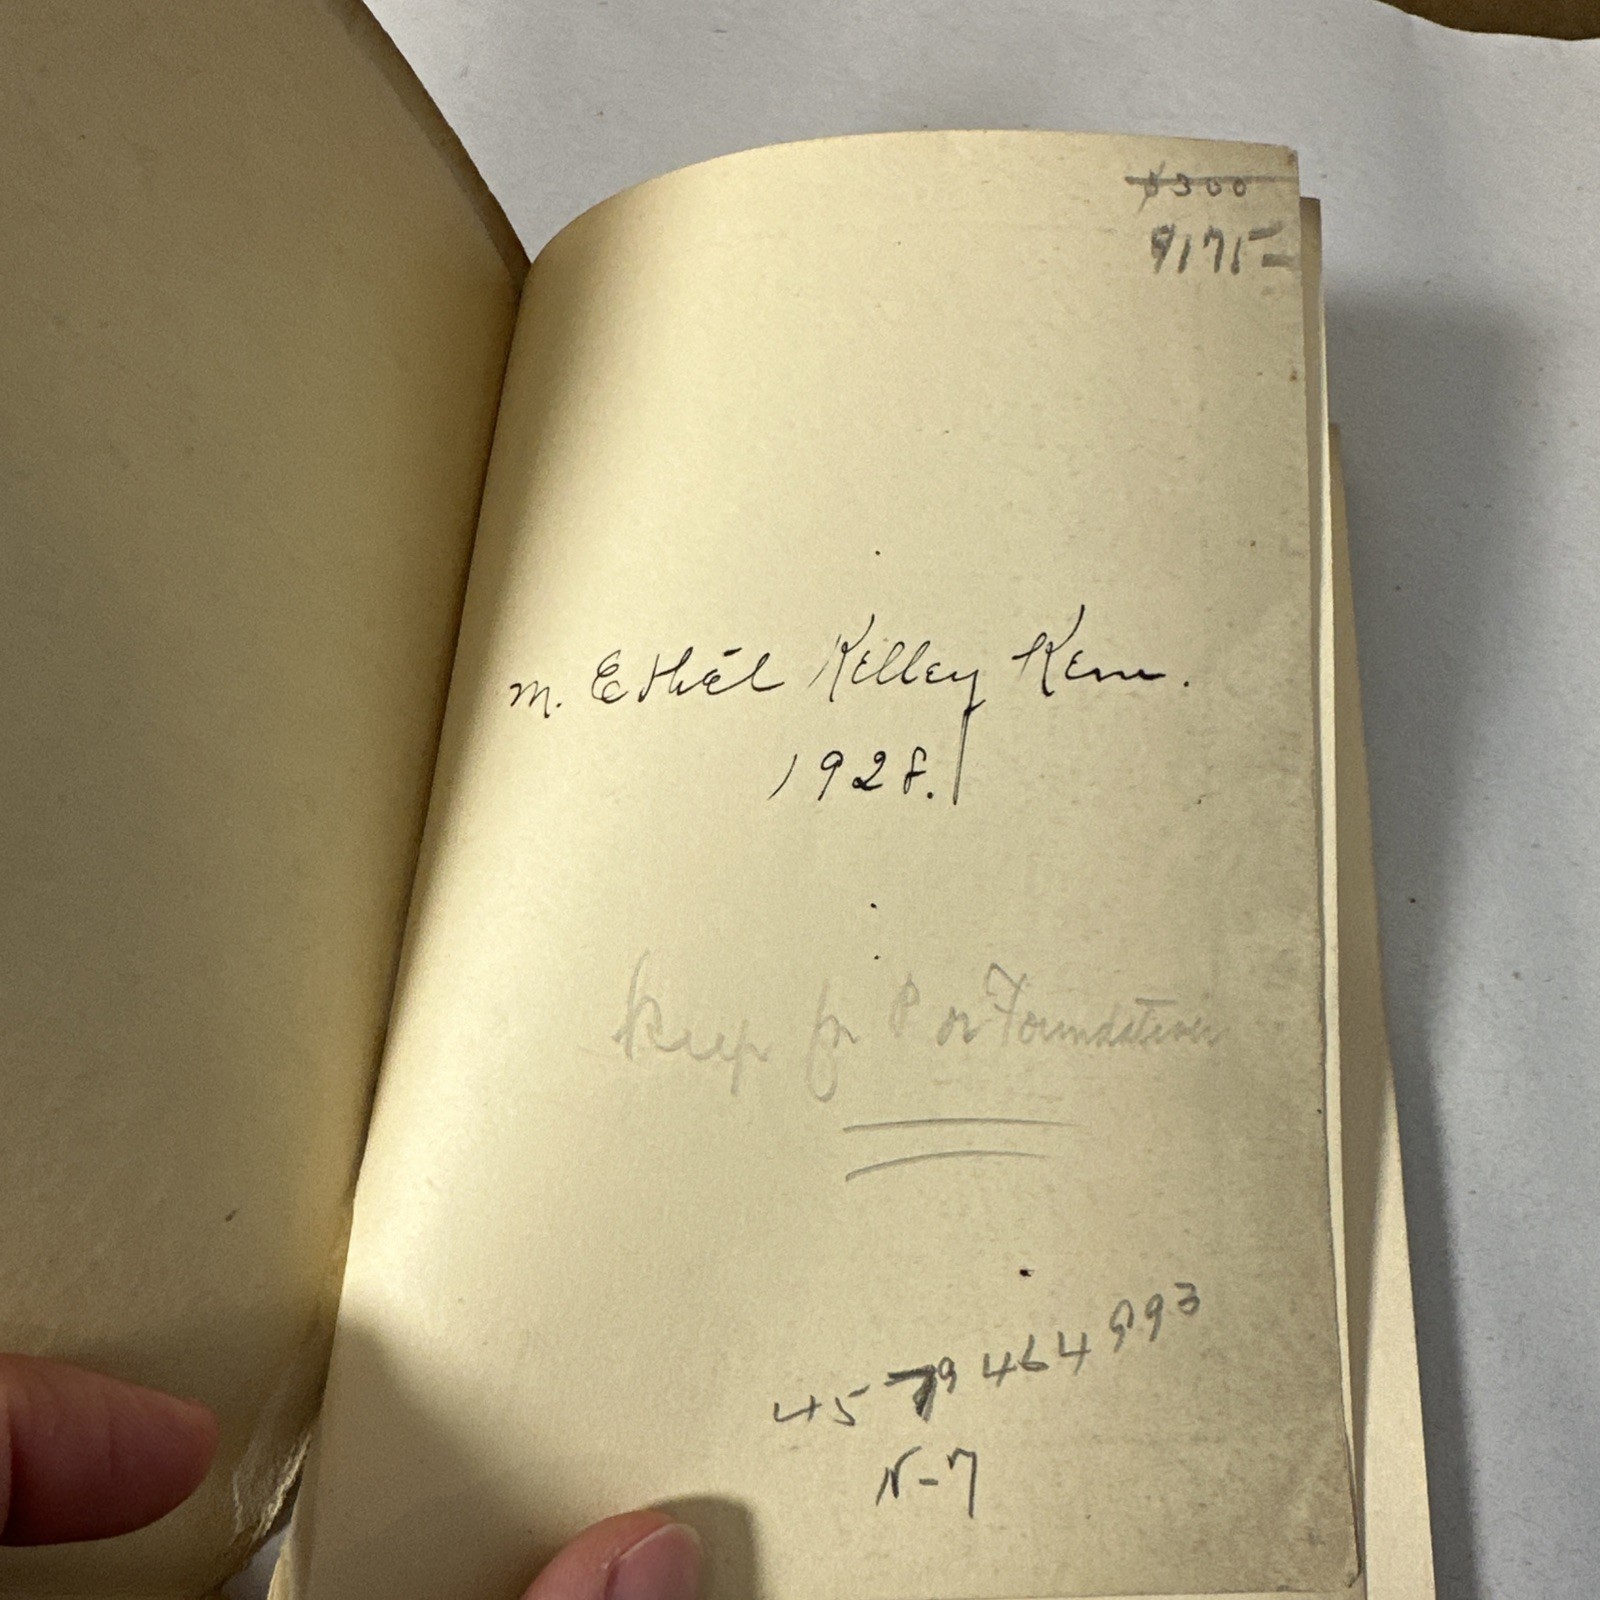 $300
$175=
M. Ethel Kelley Kem.
1928.
Keep for P or Foundation
45 79 464 993
N-7